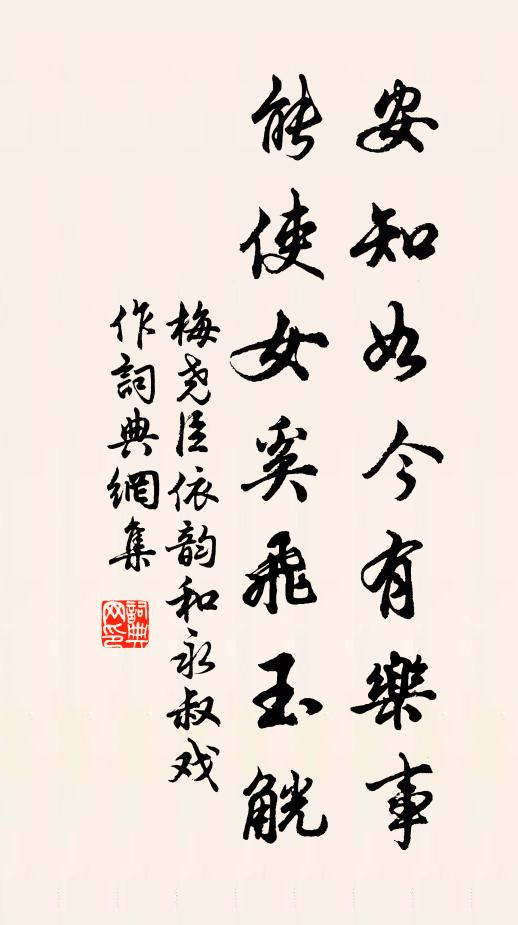 安知如今有樂事
能使女奚飛玉觥
梅尧臣依韵和永叔戏
作詞典網集
詞典网印